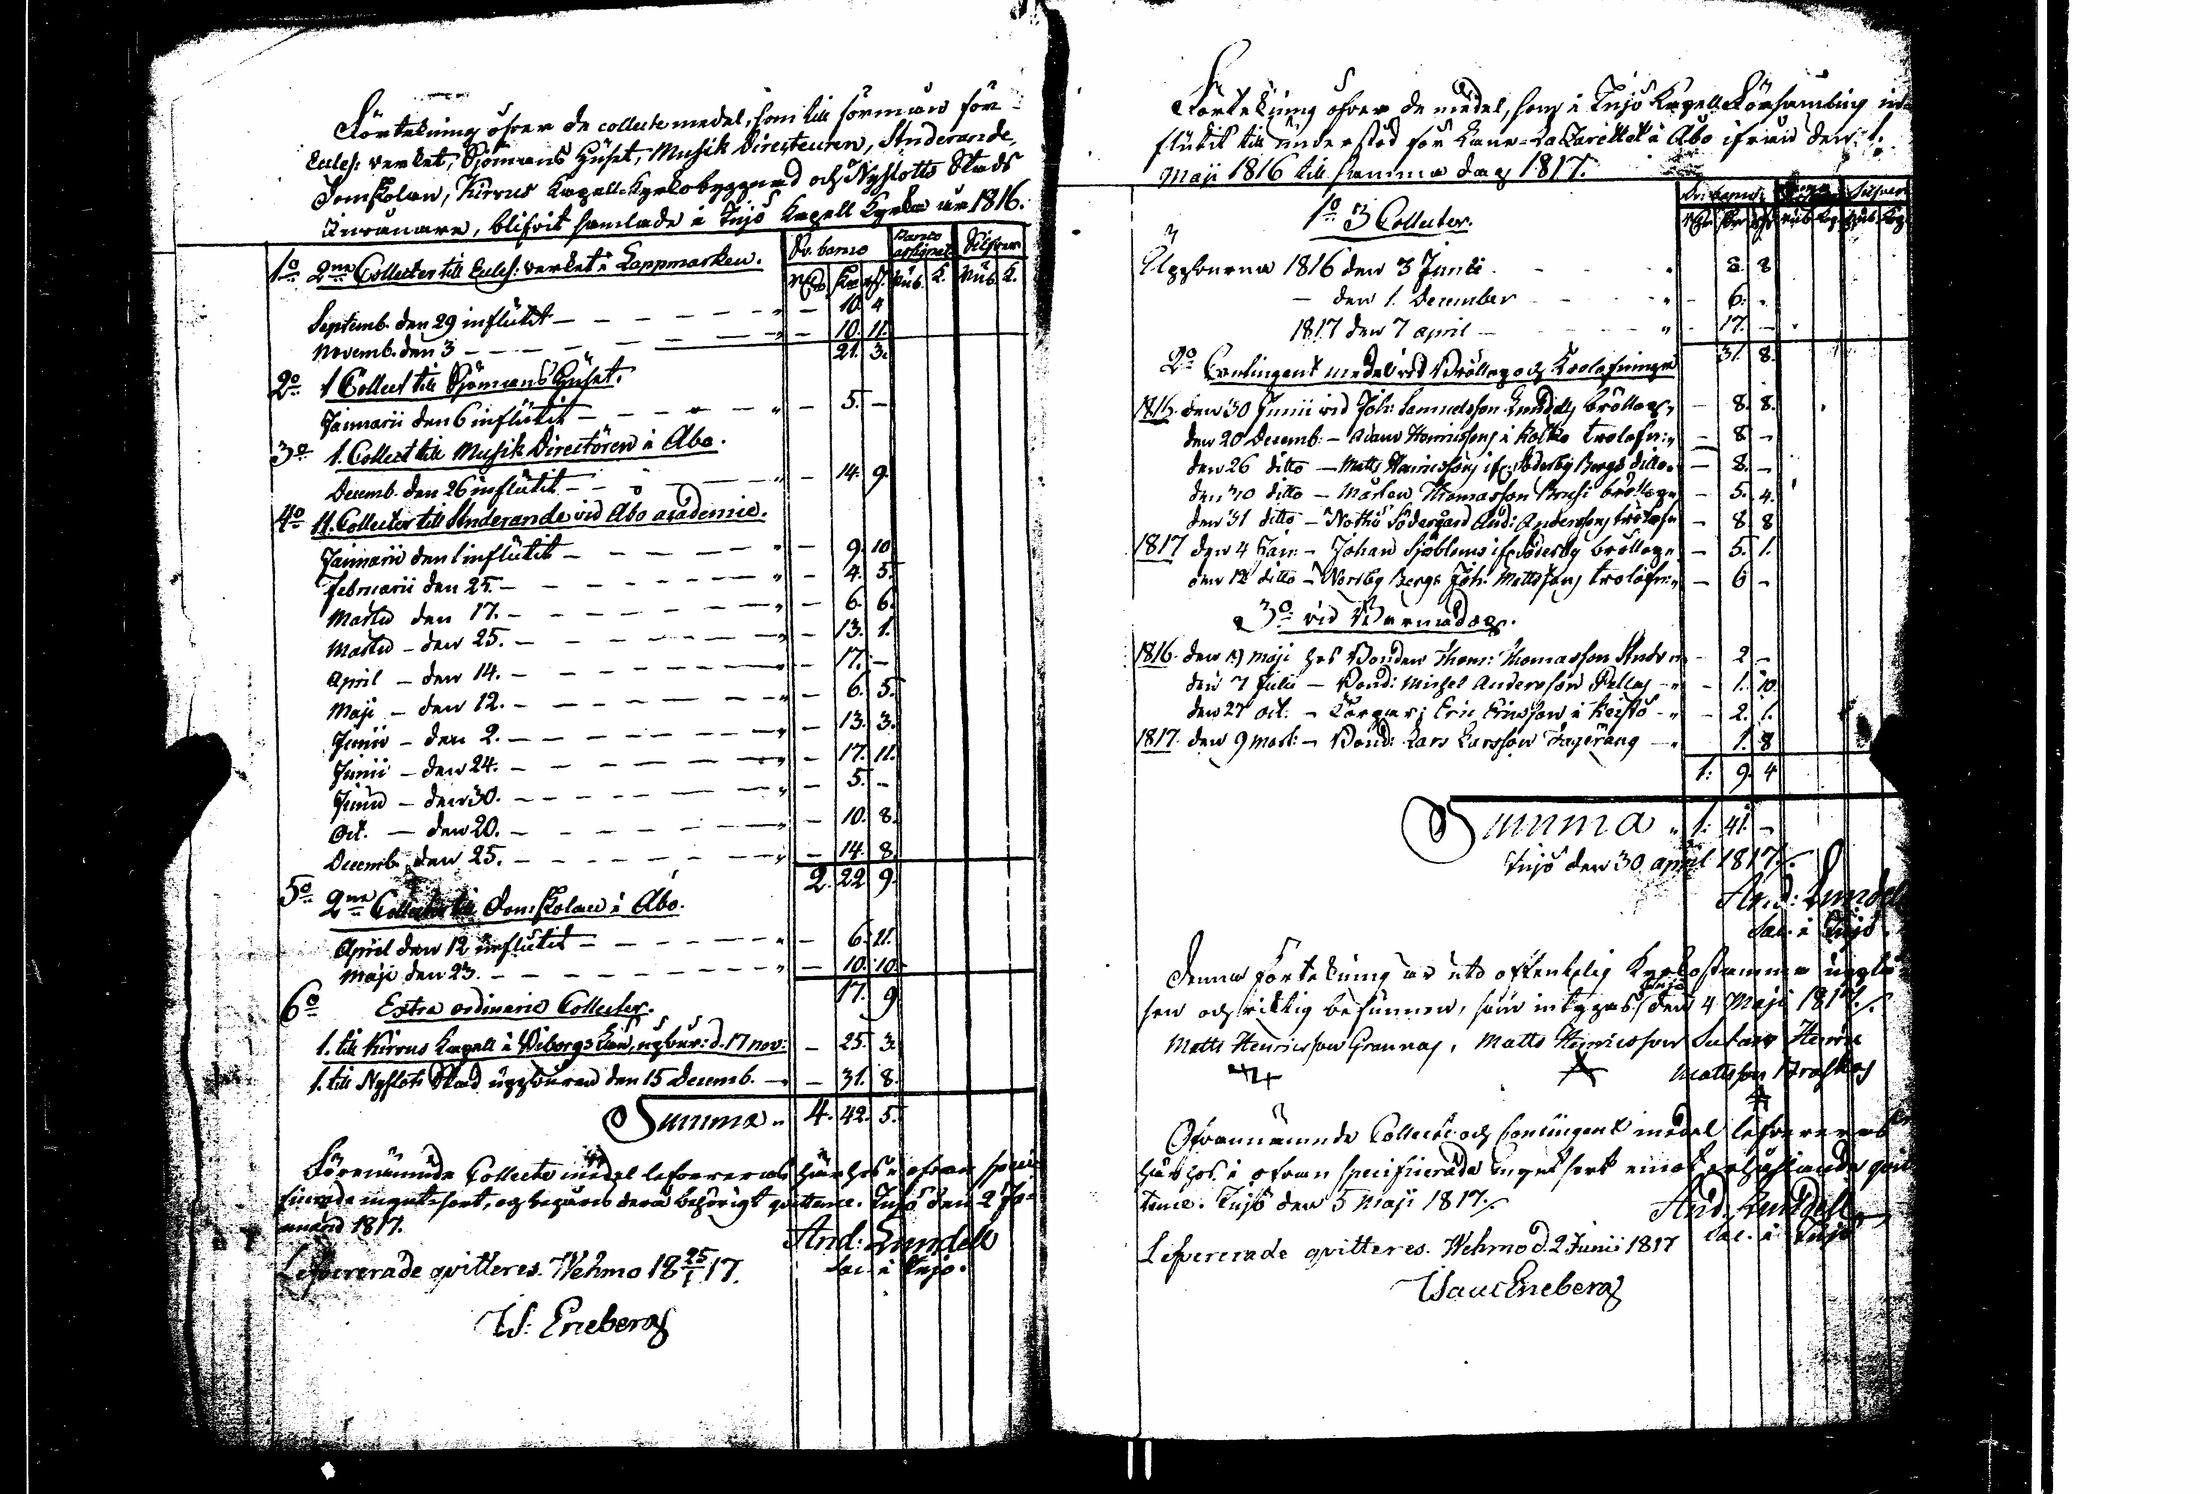 Förtekning öfver de collecte medel, som till förmån för
Eccles: verket, Sjömans Huset, Musik Directeuren, Studerande,
Domskolan, Kirvus Kapell-Kyrkobyggnad och Nyslotts Stads
Invånare, blifvit samlade i Iniö Kapell Kyrka år 1816.
Sv. banco Banco assignat. Silfver
RD. sk. rs. Rub. K. Rub. K.
1o 2ne Collecter till Eccles: verket i Lappmarken.
Septemb. den 29 influtit — — — — „ — 10. 4
Novemb. den 3 — — — — „ — 10. 11.
21. 3.
2o 1 Collect till Sjömans Huset.
Januarii den 6 influtit — — — — „ — 5. —
3o 1. Collect till Musik Directören i Åbo.
Decemb. den 26 influtit — — — „ — 14. 9.
4o 11. Collecter till Studerande vid Åbo academie.
Januarii den 1 influtit — — — — „ — 9. 10
Februarii den 25. — — — — „ — 4. 5.
Martii den 17. — — — — „ — 6. 6.
Martii — den 25. — — — — „ — 13. 1.
April — den 14. — — — — „ — 17. —
Maji — den 12. — — — — „ — 6. 5.
Junii — den 2. — — — — „ — 13. 3.
Junii — den 24. — — — — „ — 17. 11.
Junii — den 30. — — — — „ — 5. —
Oct. — den 20. — — — — „ — 10. 8.
Decemb. den 25. — — — — „ — 14. 8.
2. 22 9.
5o 2ne Collecter till Domskolan i Åbo.
April den 12 influtit — — — — „ — 6. 11.
Maji den 23. — — — — „ — 10. 10.
17. 9
6o Extra ordinarie Collecter.
1. till Kirvus Kapell i Wiborgs Län, upbur: d. 17 nov: — 25. 3.
1. till Nyslots Stad uppburen den 15 Decemb. — — 31. 8.
Summa „ 4. 42. 5.
Förenämnde Collecte medel lefvereras här hos i ofvan speci-
ficerade mynt-sort, och begäres derå behörigt qvittence. Iniö den 2 Ja-
nuarii 1817.
And: Lundell
Sac: i Iniö.
Lefvererade qvitteres. Wehmo 18 25/1 17.
Is: Eneberg
Förtekning öfver de medel, som i Iniö Kapell Församling in-
flutit till understöd för Läne-Lazarettet i Åbo ifrån den 1.
Maji 1816 till samma dag 1817.
1o 3 Collecter.
Uppburna 1816 den 3 Junii „ 8. 8
— den 1. December „ — 6. „
1817 den 7 april — „ — 17. —
31. 8.
2o Contingent medel vid Bröllop och Trolofningar
1816. den 30 Junii vid Joh: Samuelsson Lundells bröllop „ — 8. 8.
den 20 Decemb. — Adam Henricssons i Kolko trolofn: „ — 8 —
den 26 ditto — Matts Henricssons i Söderby Bergs ditto „ — 8. —
den 30 ditto — Mårten Thomasson Brusi bröllop „ — 5. 4.
den 31 ditto — Nothö Södergård And: Anderssons trolofn „ — 8 8
1817 den 4 Jan: — Johan Sjöbloms i Söderby bröllop „ — 5. 1.
den 12 ditto — Norrby Bergs Joh: Mattssons trolofn: „ — 6 —
3o vid Barnadop.
1816. den 19 maji hos Bonden Thom: Thomasson „ — 2 —
den 7 Julii — Bond: Michel Andersson Pellas — „ — 1. 10.
den 27 Oct. — Torpar: Eric Ericsson i Keistö — „ — 2. 1.
1817. den 9 mart: — Bond: Lars Larsson — „ 1. 8
1: 9. 4
Summa „ 1: 41. —
Iniö den 30 april 1817.
And: Lundell
Sac: i Iniö.
Denna Förtekning är uti offentelig Kyrkostämma upplä-
sen och riktig befunnen, som intygas Iniö den 4 Maji 1817.
Matts Henricsson Grannas, Matts Henricsson Henric
Mattsson
Ofvannämnde Collect och Contingent medel lefvereras
här hos i ofvan specificerade myntsort emot erhållande qvit-
tence. Iniö den 5 Maji 1817.
And. Lundell
Sac: i Iniö
Lefvererade qvitteres. Wehmo d. 2 Junii 1817
Isaac Eneberg